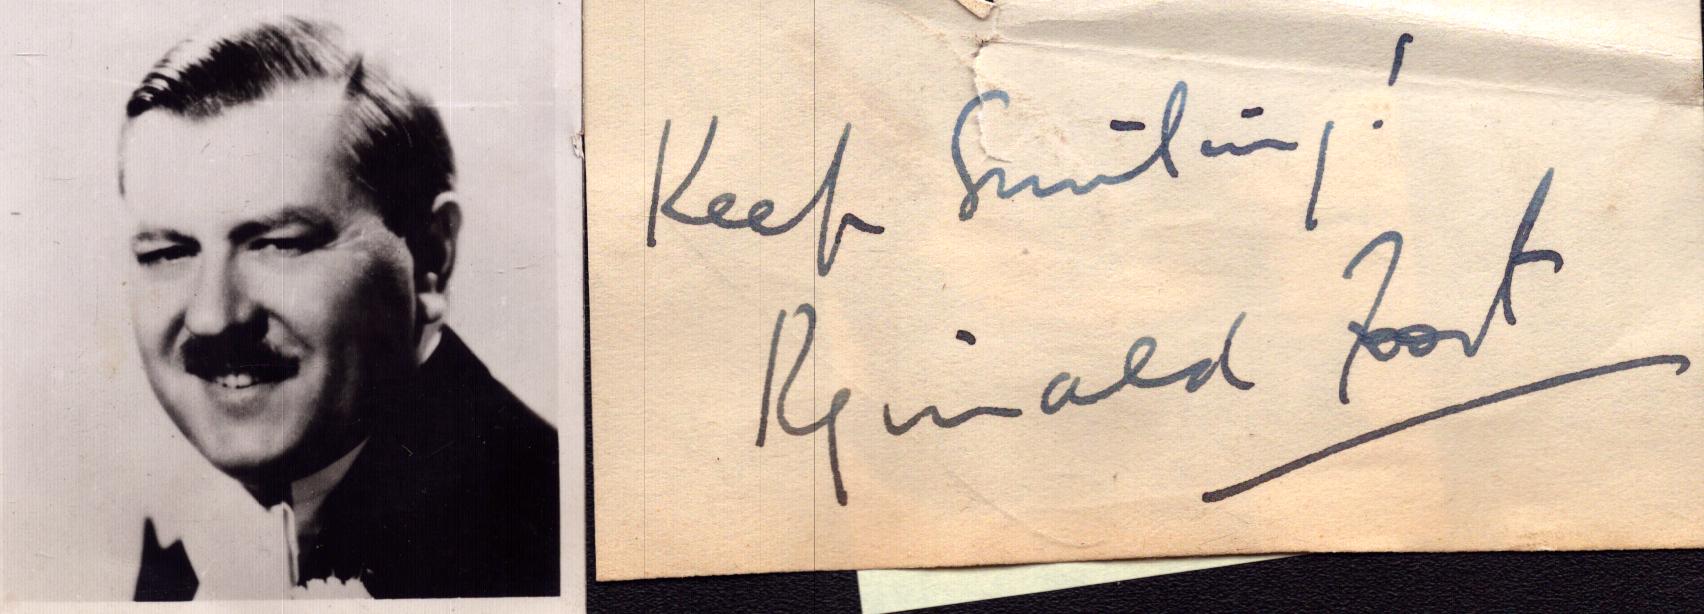 Keep Smiling!
Reginald Foort